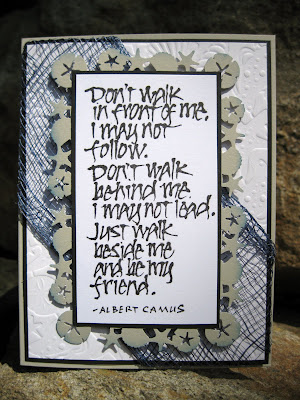 Don't walk
in front of me,
I may not
follow.
Don't walk
behind me
I may not lead.
Just walk
beside me
and be my
friend.
-ALBERT CAMUS